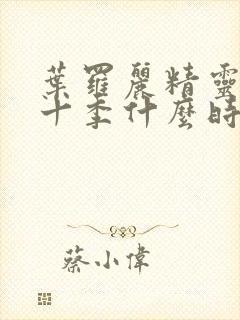 葉羅麗精靈
十季什麼時
蔡小偉